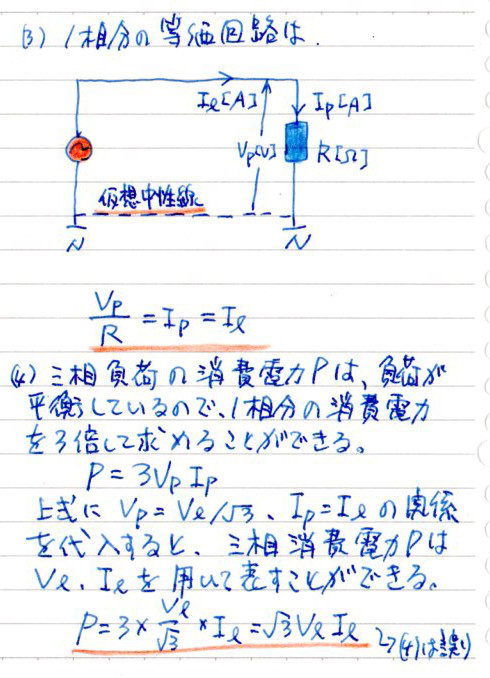 (3) 1相分の等価回路は.
Iℓ[A]
Ip[A]
Vp[V]
R[Ω]
仮想中性線
N
N
Vp/R = Ip = Iℓ
(4) 三相負荷の消費電力Pは、負荷が
平衡しているので、1相分の消費電力
を3倍して求めることができる。
P = 3VpIp
上式に Vp = Vℓ/√3、Ip = Iℓ の関係
を代入すると、三相消費電力Pは
Vℓ、Iℓを用いて表すことができる。
P = 3 × Vℓ/√3 × Iℓ = √3 Vℓ Iℓ
↳(4)は誤り